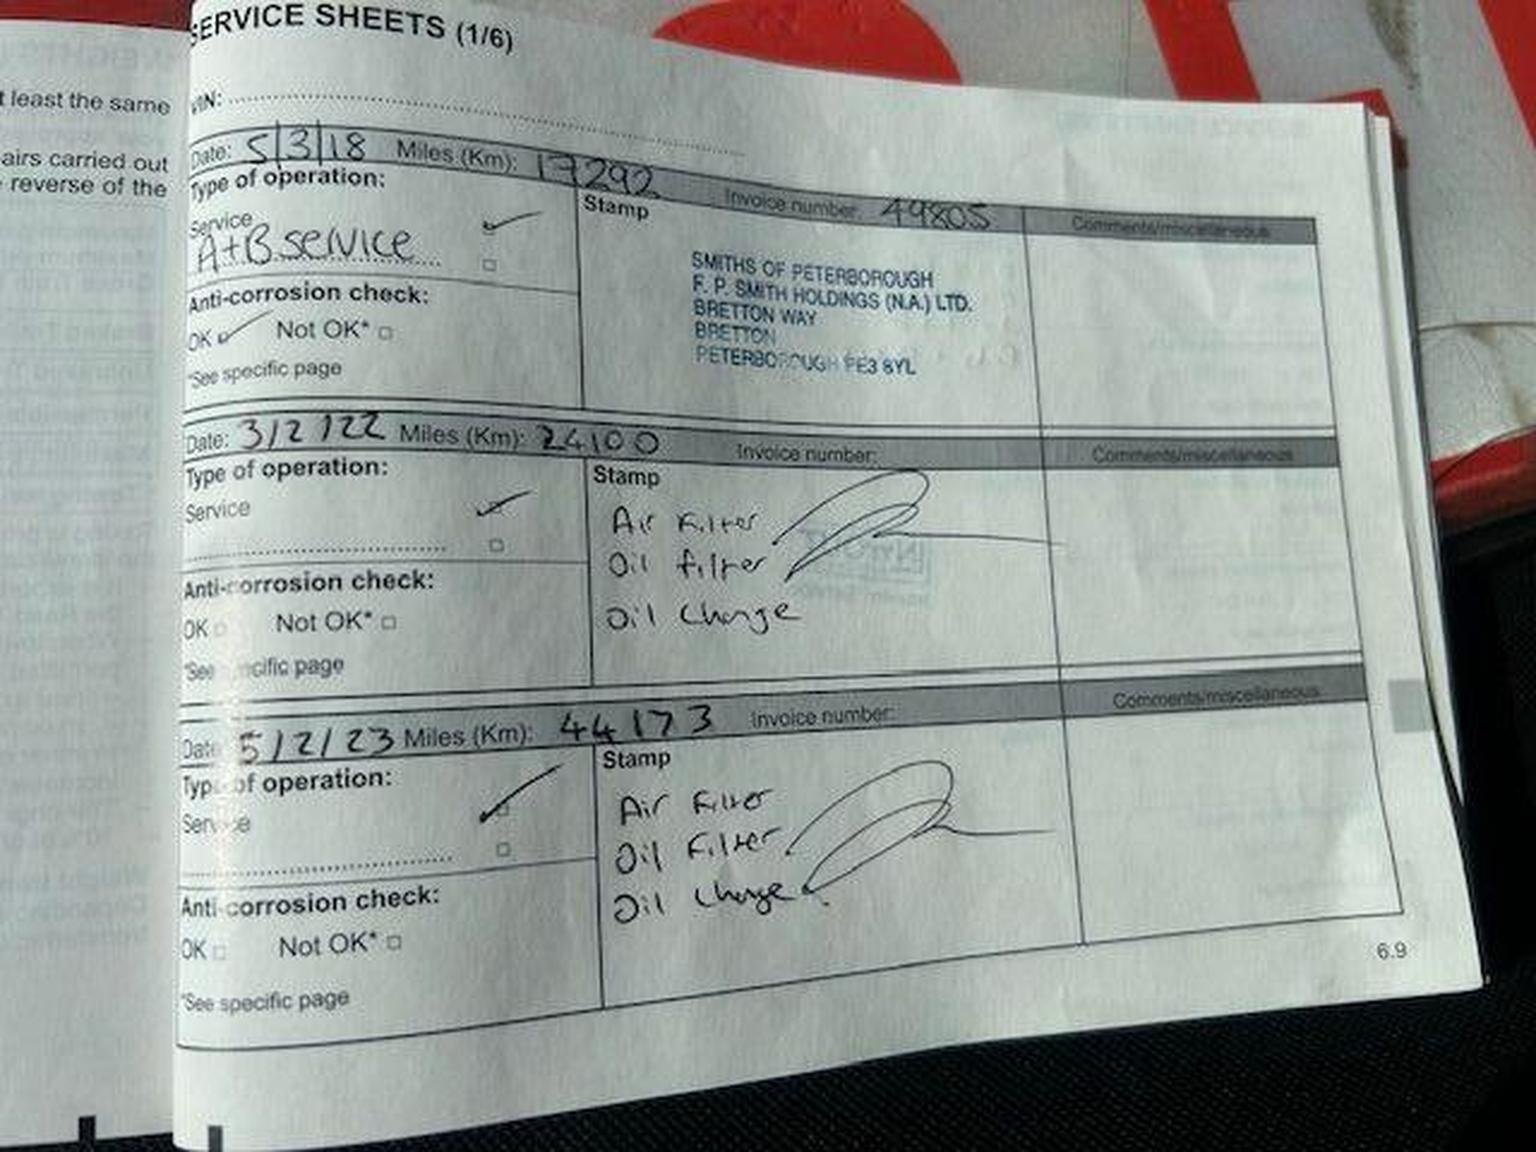 SERVICE SHEETS (1/6)
t least the same
airs carried out
reverse of the
VIN:
Date: 5/3/18 Miles (Km): 17292 Invoice number: 49805 Comments/miscellaneous
Type of operation:
Stamp
Service
A+B service
SMITHS OF PETERBOROUGH
F. P. SMITH HOLDINGS (N.A.) LTD.
BRETTON WAY
BRETTON
PETERBOROUGH PE3 8YL
Anti-corrosion check:
OK Not OK*
*See specific page
Date: 3/2/22 Miles (Km): 24100 Invoice number: Comments/miscellaneous
Type of operation:
Stamp
Service
Air Filter
Oil filter
Oil Change
Anti-corrosion check:
OK Not OK*
*See specific page
Date 5/2/23 Miles (Km): 44173 Invoice number: Comments/miscellaneous
Type of operation:
Stamp
Service
Air Filter
Oil Filter
Oil Change
Anti-corrosion check:
OK Not OK*
*See specific page
6.9